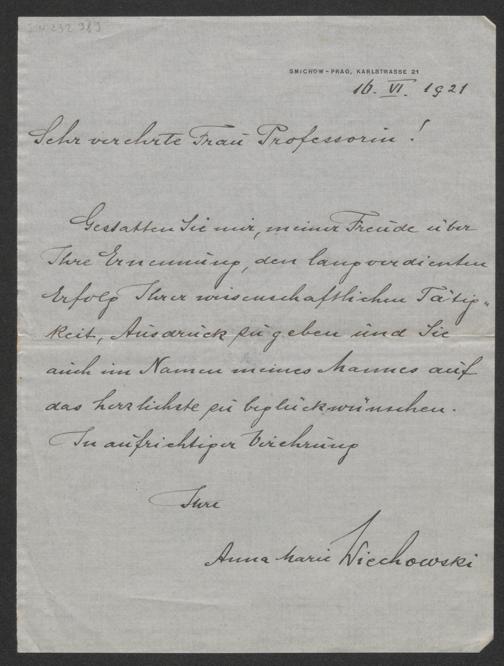 SMICHOW-PRAG, KARLSTRASSE 21
16. VI. 1921
Sehr verehrte Frau Professorin!
Gestatten Sie mir, meiner Freude über
Ihre Ernennung, den langverdienten
Erfolg Ihrer wissenschaftlichen Tätig-
keit, Ausdruck zu geben und Sie
auch im Namen meines Mannes auf
das herzlichste zu beglückwünschen.
In aufrichtiger Verehrung
Ihre
Anna Marie Wiechowski